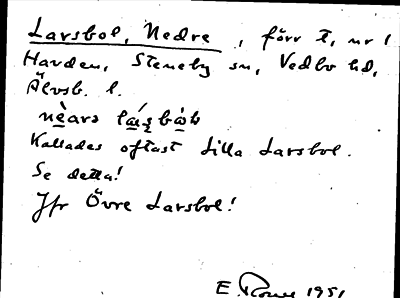 Larsbol, Nedre, förr t, nr 1
Havden, Steneby sn, Vedbo hd,
Älvsb. l.
Kallades oftast Lilla Larsbol.
Se detta!
Jfr Övre Larsbol!
E. 1951